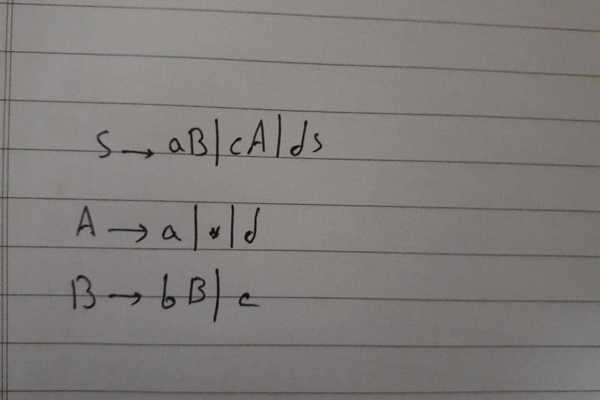 S → aB | cA | ds
A → a | * | d
B → bB | c